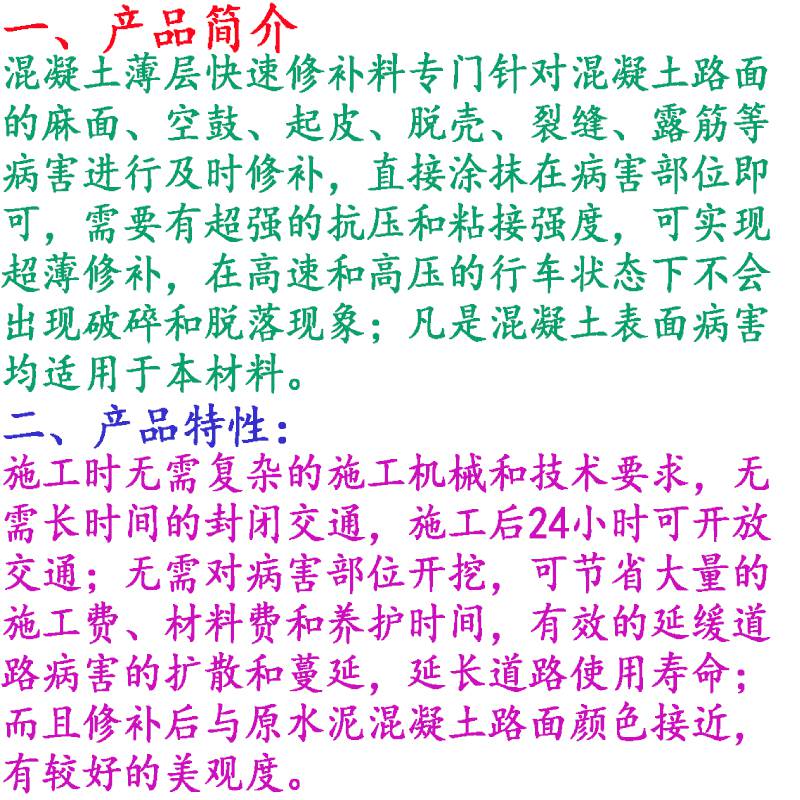 一、产品简介
混凝土薄层快速修补料专门针对混凝土路面
的麻面、空鼓、起皮、脱壳、裂缝、露筋等
病害进行及时修补，直接涂抹在病害部位即
可，需要有超强的抗压和粘接强度，可实现
超薄修补，在高速和高压的行车状态下不会
出现破碎和脱落现象；凡是混凝土表面病害
均适用于本材料。
二、产品特性：
施工时无需复杂的施工机械和技术要求，无
需长时间的封闭交通，施工后24小时可开放
交通；无需对病害部位开挖，可节省大量的
施工费、材料费和养护时间，有效的延缓道
路病害的扩散和蔓延，延长道路使用寿命；
而且修补后与原水泥混凝土路面颜色接近，
有较好的美观度。